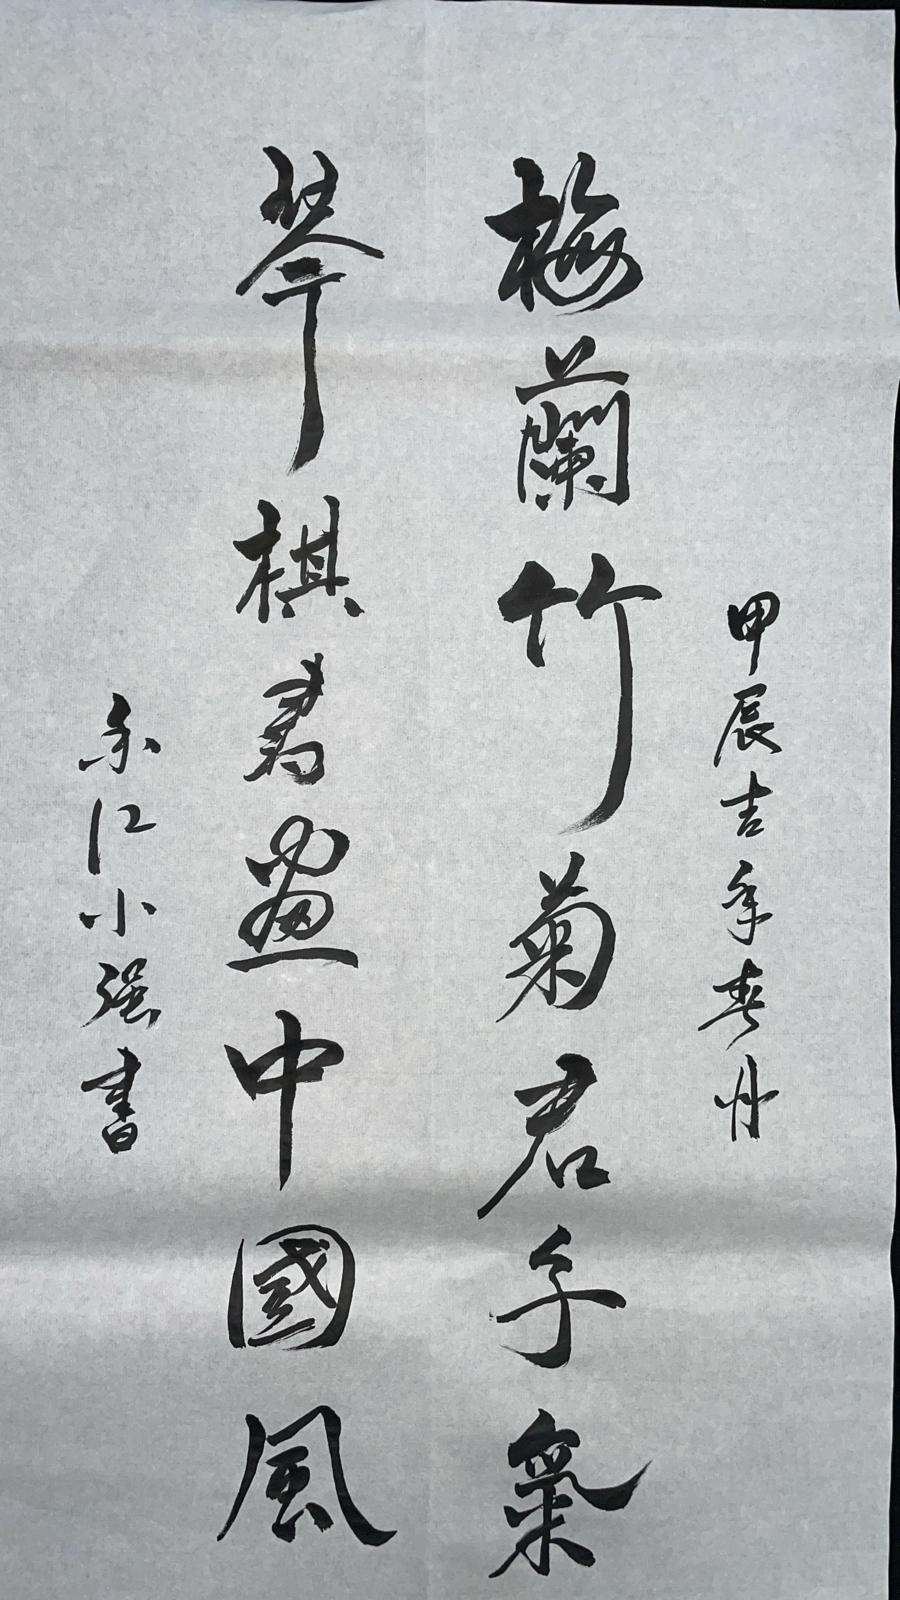 甲辰吉年春月
梅蘭竹菊君子氣
琴棋書畫中國風
江小强書